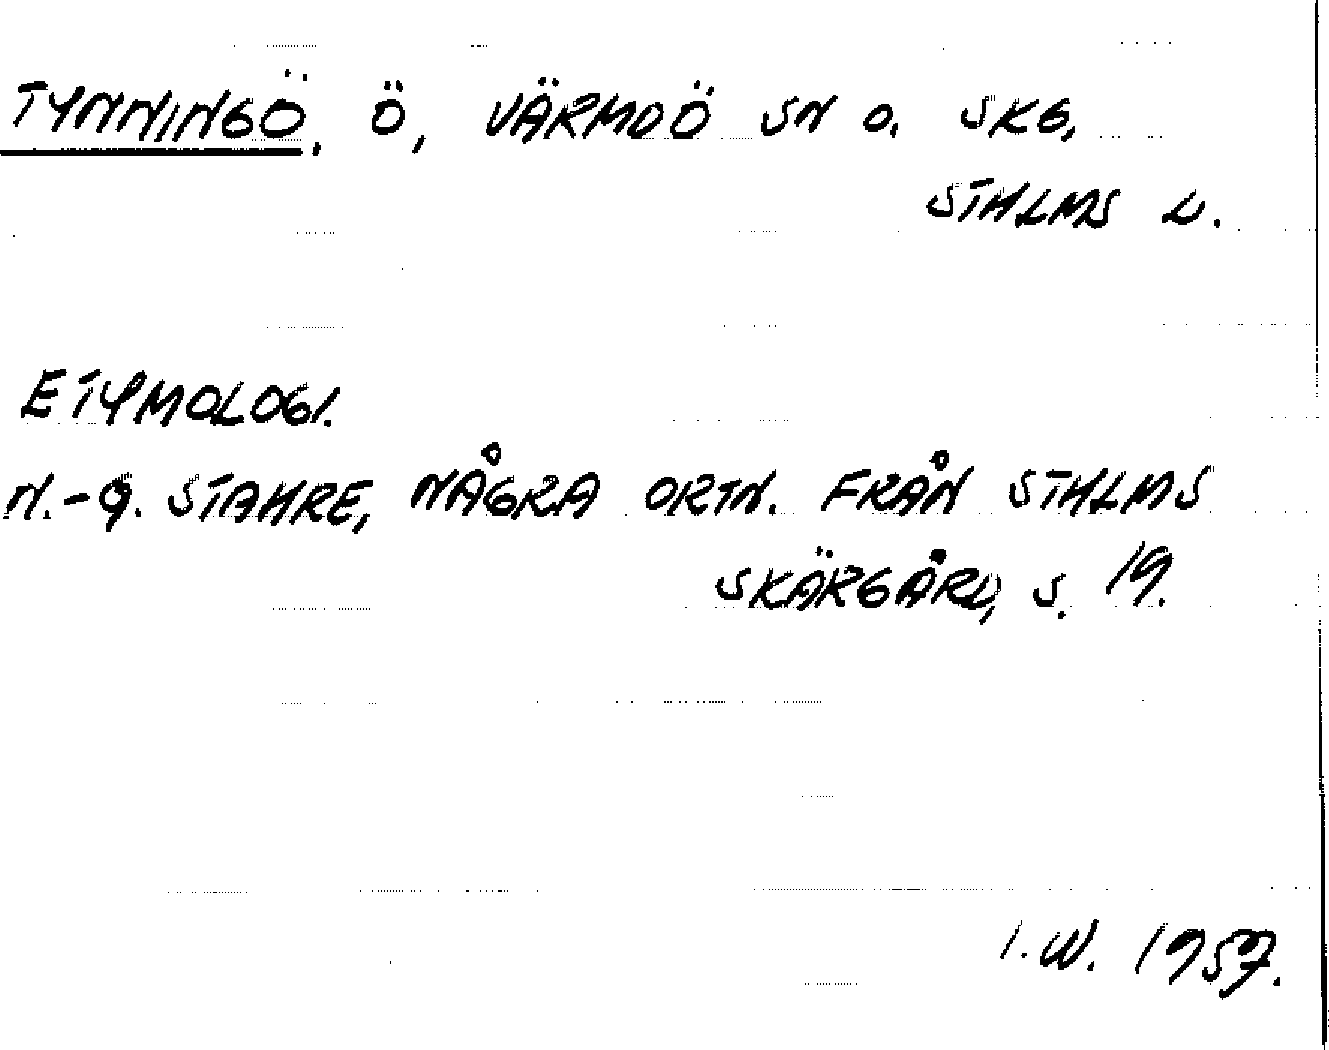 TYNNINGÖ, Ö, VÄRMDÖ SN O. SKG,
STHLMS L.
ETYMOLOGI.
N.-G. STAHRE, NÅGRA ORTN. FRÅN STHLMS
SKÄRGÅRD, S. 19.
I.W. 1957.